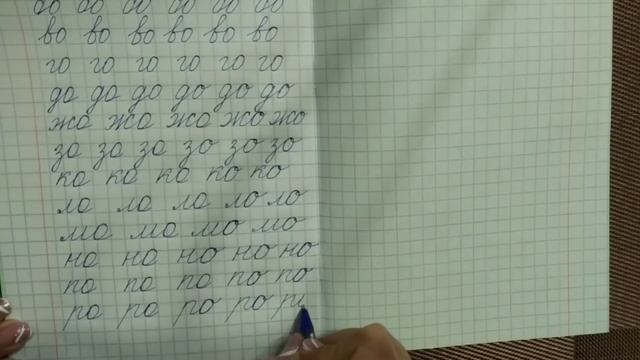 во во во во во во
го го го го го го
до до до до до до
жо жо жо жо жо
зо зо зо зо зо зо
ко ко ко ко ко
ло ло ло ло ло
мо мо мо мо
но но но но но
по по по по по
ро ро ро ро р